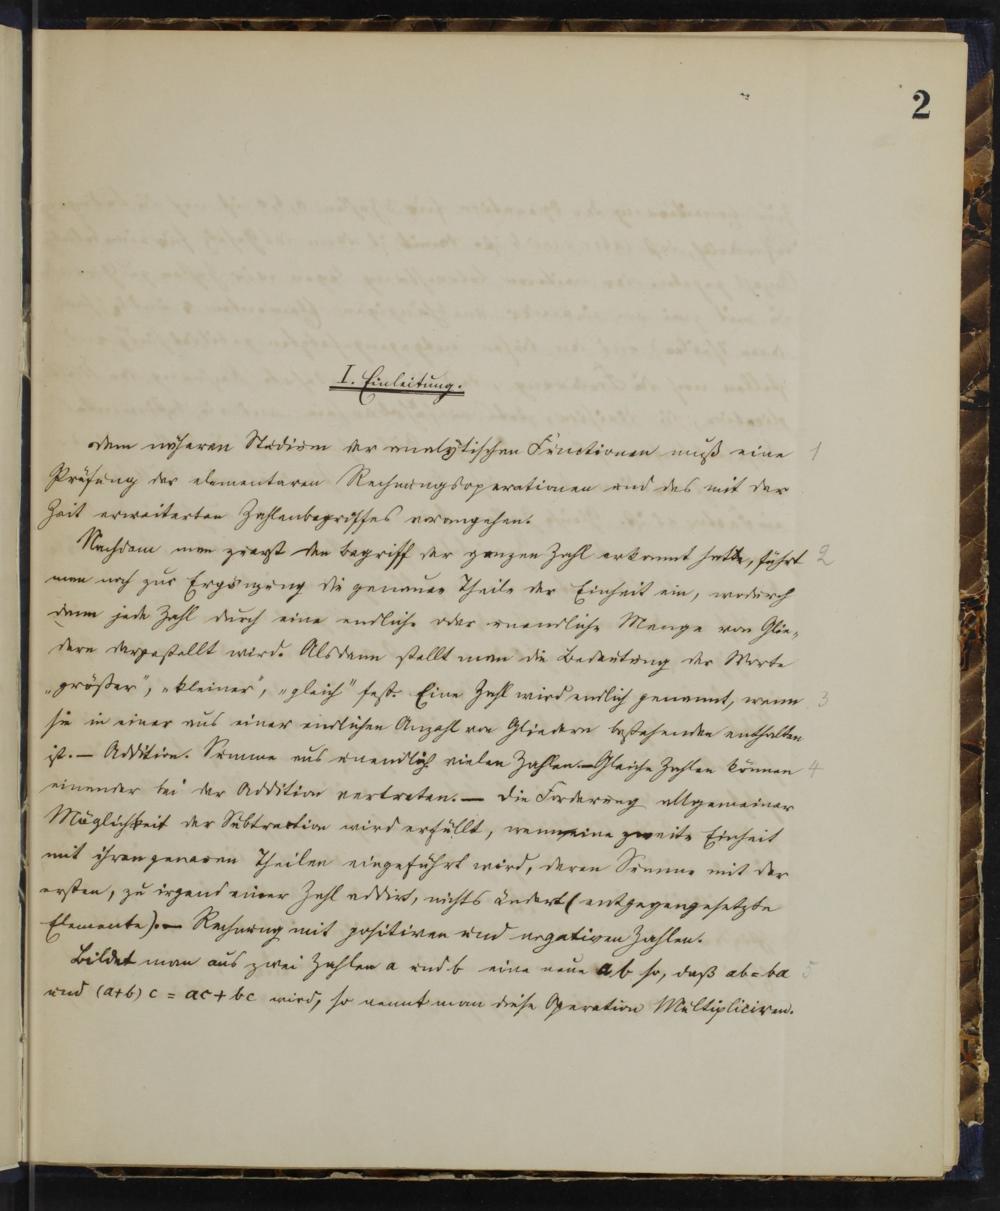 2
I. Einleitung.
Dem näheren Studium der analytischen Functionen muß eine 1
Prüfung der elementaren Rechnungsoperationen und des mit der
Zeit erweiterten Zahlenbegriffes vorangehen.
Nachdem man zuerst den Begriff der ganzen Zahl erkannt hatte, führt 2
man noch zur Ergänzung die genauen Theile der Einheit ein, wodurch
dann jede Zahl durch eine endliche oder unendliche Menge von Glie-
dern dargestellt wird. Alsdann stellt man die Bedeutung der Worte
„größer", „kleiner", „gleich" fest. Eine Zahl wird endlich genannt, wenn 3
sie in einer aus einer endlichen Anzahl von Gliedern bestehenden enthalten
ist. — Addition. Summe aus unendlich vielen Zahlen. — Gleiche Zahlen können 4
einander bei der Addition vertreten. — Die Forderung allgemeiner
Möglichkeit der Subtraction wird erfüllt, wenn eine zweite Einheit
mit ihren genauen Theilen eingeführt wird, deren Summe mit der
ersten, zu irgend einer Zahl addirt, nichts ändert (entgegengesetzte
Elemente). — Rechnung mit positiven und negativen Zahlen.
Bildet man aus zwei Zahlen a und b eine neue ab so, daß ab = ba 5
und (a+b) c = ac + bc wird, so nennt man diese Operation Multipliciren.